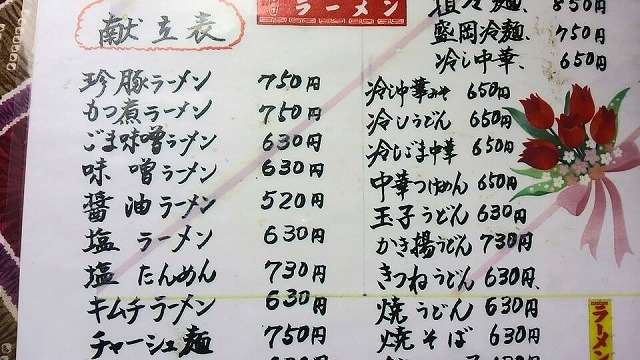 献立表
ラーメン
珍豚ラーメン 750円
もつ煮ラーメン 750円
ごま味噌ラーメン 630円
味噌ラーメン 630円
醤油ラーメン 520円
塩ラーメン 630円
塩たんめん 730円
キムチラーメン 630円
チャーシュ麺 750円
担々麺、 850円
盛岡冷麺、 750円
冷し中華、 650円
冷し中華みそ 650円
冷しうどん 650円
冷しごま中華 650円
中華つけめん 650円
玉子うどん 630円
かき揚うどん 730円
きつねうどん 630円、
焼うどん 630円
焼そば 630円
ラーメン